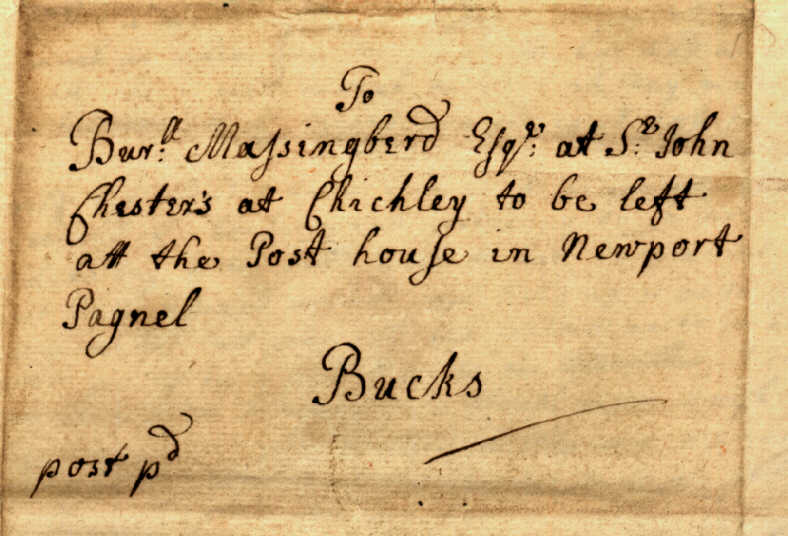 To
Bur:ll Maſsingberd Eſqr: at Sr: John
Chester's at Chichley to be left
att the Post houſe in Newport
Pagnel
Bucks
post pd